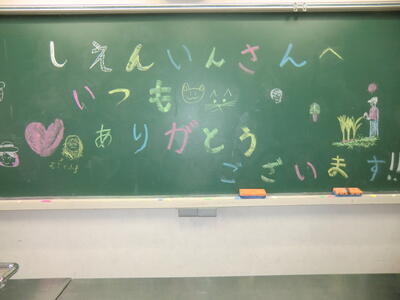 しえんいんさんへ
いつも
ありがとう
ございます!!